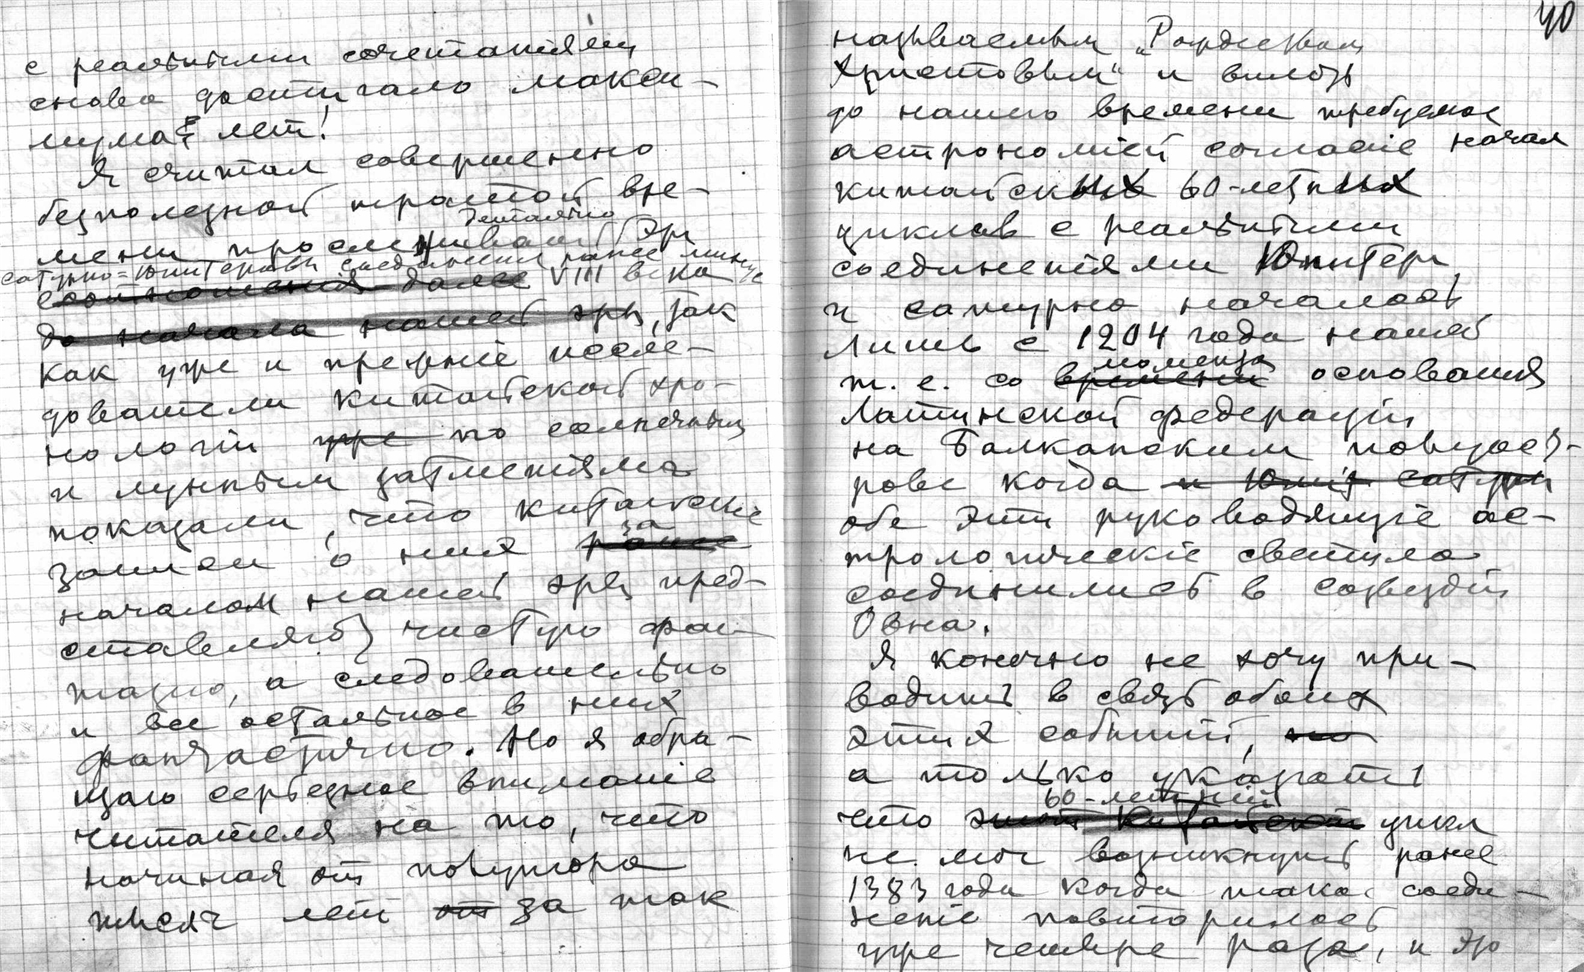 с реальными сочетаніями
снова достигало макси-
мума лет!
Я считал совершенно
безполезной тратой вре-
мени прослеживать детально эти
сатурно=Юпитеровы соединения ранее минус
соотношения далее VIII века
до начала нашей эры, так
как уже и прежніе после-
дователи китайской хро-
нологіи уже по солнечным
и лунным затменіям
показали, что китайскіе
записи о них ранее за
началом нашей эры пред-
ставляют чистую фан-
тазію, а следовательно
и все остальное в них
фантастично. Но я обра-
щаю серьезное вниманіе
читателя на то, что
начиная от полутора
тысяч лет от за так
40
называемым „Рождеством
Христовым“ и вплоть
до нашего времени требуемое
астрономіей согласіе начал
китайских 60-летних
циклов с реальными
соединеніями Юпитера
и сатурна началось
лишь с 1204 года нашей
т. е. со времени момента основания
Латинской федераціи
на Балканском полуост-
рове когда и Юпит сатурн
обе эти руководящіе ас-
трологическіе светила
соединились в созвездіи
Овна.
Я конечно не хочу при-
водить в связь обоих
этих событий, но
а только указать
что этот китайский 60-летній цикл
не мог возникнуть ранее
1383 года когда такое соеди-
неніе повторилось
уже четыре раза, и это